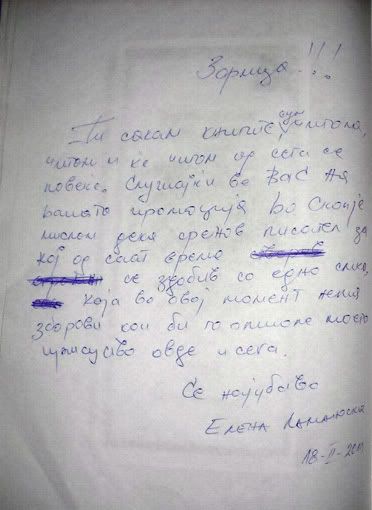 Зорница!!!
Ти сакам книгите, сум читала,
читам и ќе читам од сега се
повеќе. Слушајќи ве Вас на
вашата промоција во Скопје
мислам дека сретнав писател за
кој од сват време
се здобив со една слика,
која во овој момент нема
зборови кои би го опишале моето
присуство овде и сега.
Се најубаво
Елена
18-II-20